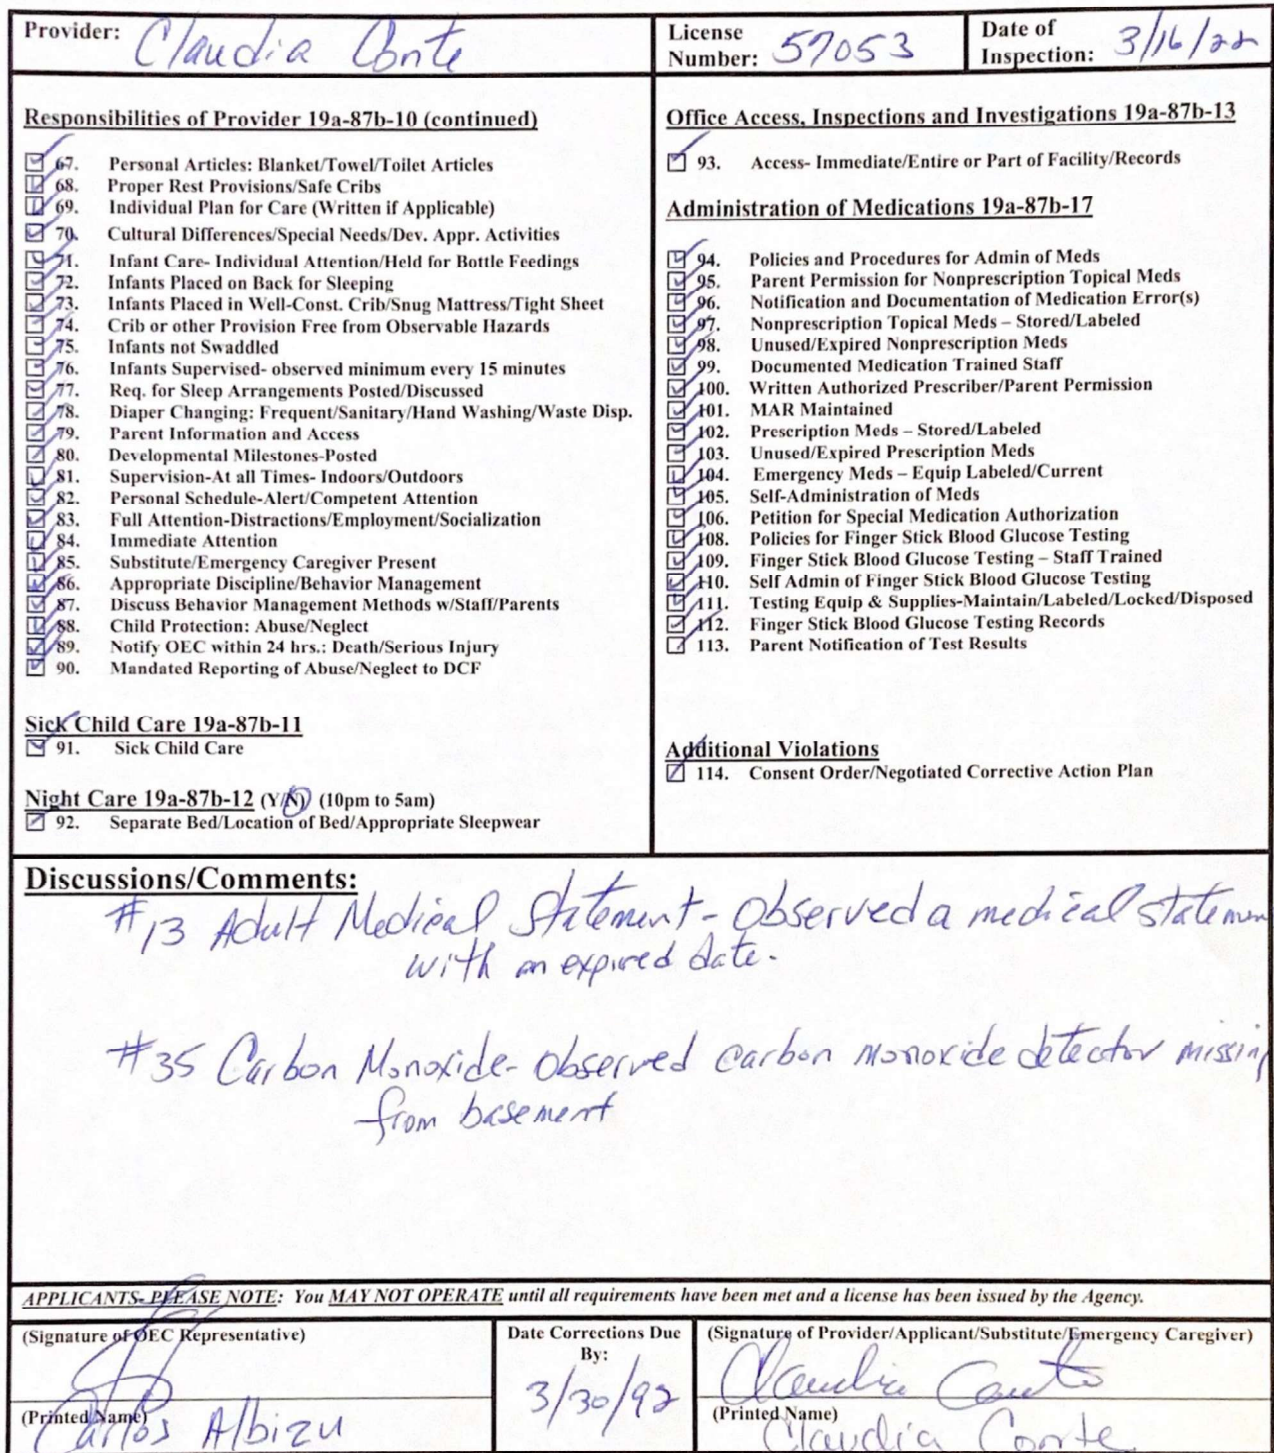 Provider: Claudia Conte
License Number: 57053
Date of Inspection: 3/16/22
Responsibilities of Provider 19a-87b-10 (continued)
67. Personal Articles: Blanket/Towel/Toilet Articles
68. Proper Rest Provisions/Safe Cribs
69. Individual Plan for Care (Written if Applicable)
70. Cultural Differences/Special Needs/Dev. Appr. Activities
71. Infant Care- Individual Attention/Held for Bottle Feedings
72. Infants Placed on Back for Sleeping
73. Infants Placed in Well-Const. Crib/Snug Mattress/Tight Sheet
74. Crib or other Provision Free from Observable Hazards
75. Infants not Swaddled
76. Infants Supervised- observed minimum every 15 minutes
77. Req. for Sleep Arrangements Posted/Discussed
78. Diaper Changing: Frequent/Sanitary/Hand Washing/Waste Disp.
79. Parent Information and Access
80. Developmental Milestones-Posted
81. Supervision-At all Times- Indoors/Outdoors
82. Personal Schedule-Alert/Competent Attention
83. Full Attention-Distractions/Employment/Socialization
84. Immediate Attention
85. Substitute/Emergency Caregiver Present
86. Appropriate Discipline/Behavior Management
87. Discuss Behavior Management Methods w/Staff/Parents
88. Child Protection: Abuse/Neglect
89. Notify OEC within 24 hrs.: Death/Serious Injury
90. Mandated Reporting of Abuse/Neglect to DCF
Sick Child Care 19a-87b-11
91. Sick Child Care
Night Care 19a-87b-12 (Y/N) (10pm to 5am)
92. Separate Bed/Location of Bed/Appropriate Sleepwear
Office Access, Inspections and Investigations 19a-87b-13
93. Access- Immediate/Entire or Part of Facility/Records
Administration of Medications 19a-87b-17
94. Policies and Procedures for Admin of Meds
95. Parent Permission for Nonprescription Topical Meds
96. Notification and Documentation of Medication Error(s)
97. Nonprescription Topical Meds – Stored/Labeled
98. Unused/Expired Nonprescription Meds
99. Documented Medication Trained Staff
100. Written Authorized Prescriber/Parent Permission
101. MAR Maintained
102. Prescription Meds – Stored/Labeled
103. Unused/Expired Prescription Meds
104. Emergency Meds – Equip Labeled/Current
105. Self-Administration of Meds
106. Petition for Special Medication Authorization
108. Policies for Finger Stick Blood Glucose Testing
109. Finger Stick Blood Glucose Testing – Staff Trained
110. Self Admin of Finger Stick Blood Glucose Testing
111. Testing Equip & Supplies-Maintain/Labeled/Locked/Disposed
112. Finger Stick Blood Glucose Testing Records
113. Parent Notification of Test Results
Additional Violations
114. Consent Order/Negotiated Corrective Action Plan
Discussions/Comments:
#13 Adult Medical Statement - Observed a medical statemen
with an expired date.
#35 Carbon Monoxide- Observed carbon monoxide detector missing
from basement
APPLICANTS- PLEASE NOTE: You MAY NOT OPERATE until all requirements have been met and a license has been issued by the Agency.
(Signature of OEC Representative)
(Printed Name)
Carlos Albizu
Date Corrections Due
By:
3/30/92
(Signature of Provider/Applicant/Substitute/Emergency Caregiver)
Claudia Conte
(Printed Name)
Claudia Conte